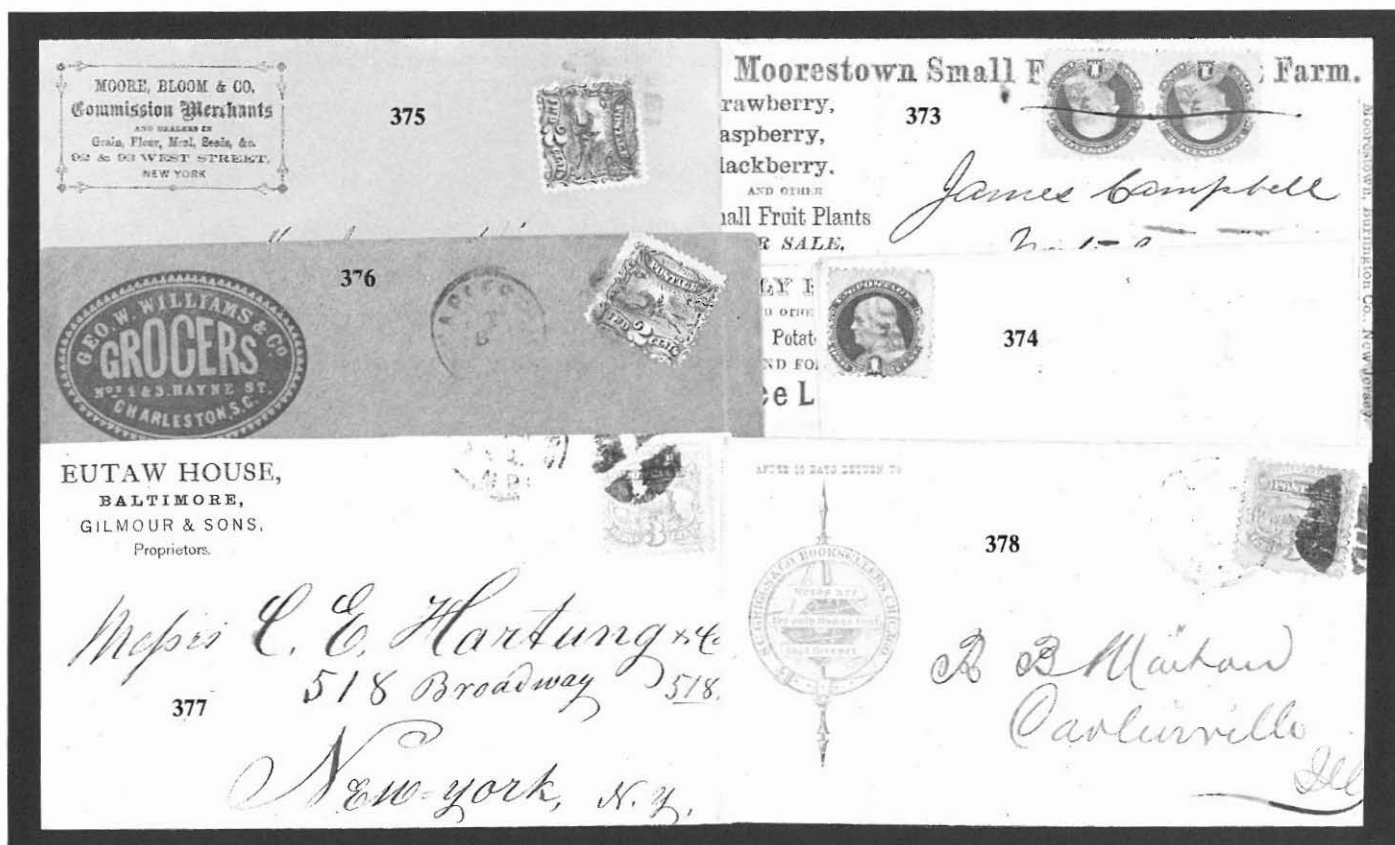 MOORE, BLOOM & CO.
Commission Merchants
AND DEALERS IN
Grain, Flour, Meal, Seeds, &c.
92 & 93 WEST STREET,
NEW YORK
375
Moorestown Small F
Farm.
rawberry,
aspberry,
lackberry.
AND OTHER
nall Fruit Plants
R SALE.
373
James Campbell
Moorestown, Burlington Co. New Jersey
GEO. W. WILLIAMS & CO
GROCERS
Nos 1 & 3. HAYNE ST.
CHARLESTON, S.C.
376
POSTAGE
LY
Potat
ND FO
ce L
POSTAGE
1
374
EUTAW HOUSE,
BALTIMORE,
GILMOUR & SONS,
Proprietors.
Messrs C. E. Hartung & Co
518 Broadway 518.
377
New-York, N.Y.
AFTER 10 DAYS RETURN TO
S.C. GRIGGS & CO BOOKSELLERS, CHICAGO
Words are
the only things that
last forever
378
R B
Carlinville
Ill